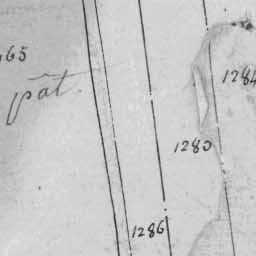 65
pât.
1284
1280
1286